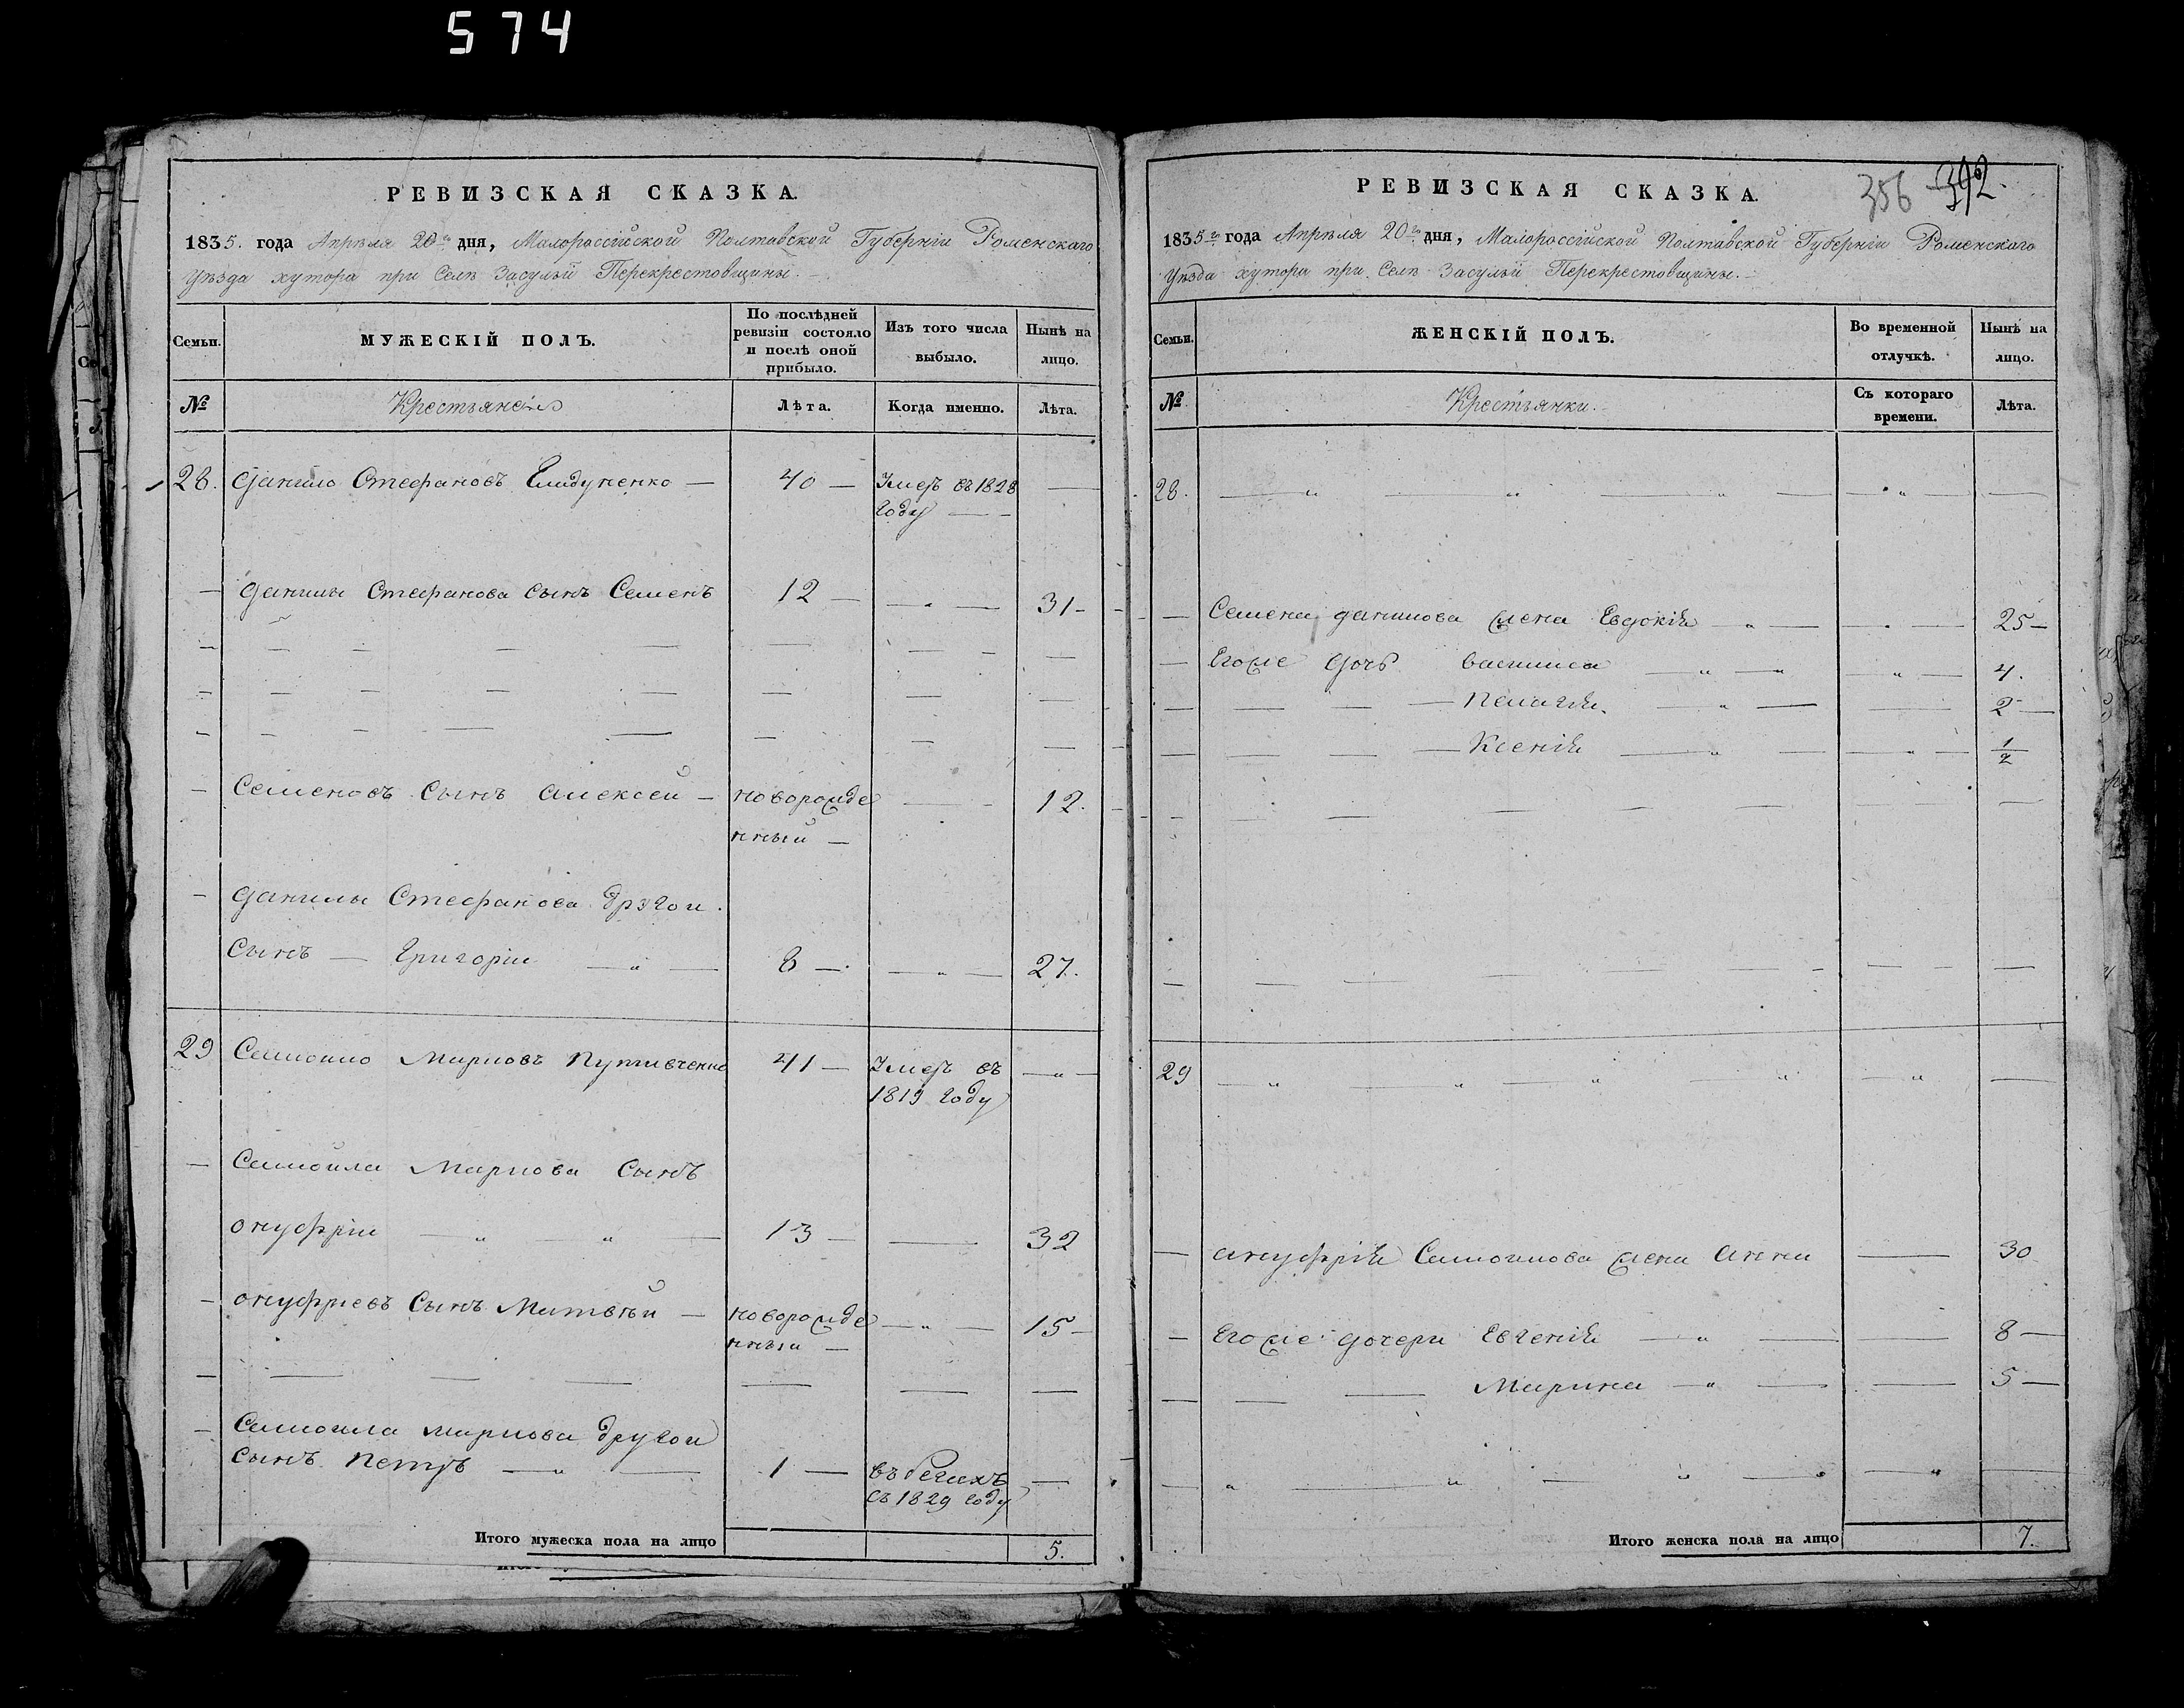 574
РЕВИЗСКАЯ СКАЗКА.
1835. года Апрѣля 20го дня, Малороссійской Полтавской Губерніи Роменскаго
Уѣзда хутора при Селѣ Засульи Перекрестовщины.
Семьи.
МУЖЕСКІЙ ПОЛЪ.
По послѣдней ревизіи состояло и послѣ оной прибыло.
Изъ того числа выбыло.
Нынѣ на лицо.
№
Крестьяне
Лѣта.
Когда именно.
Лѣта.
28. Данило Стефановъ 40 — Умеръ въ 1828 —
году — —
— Данилы Стефанова сынъ Семенъ 12 — — 31 -
— Семеновъ сынъ Алексей — новорожде — 12.
нный —
— Данилы Стефанова другои
сынъ — Григоріи — 8 — — 27.
29 Самоило Марковъ Путивченко 41 — Умеръ въ —
1819 году
— Самойла Маркова сынъ
Онуфріи — 13 — — 32
— Онуфріевъ сынъ Матвѣй — новорожде — 15 —
нныи —
— Самоила Маркова другои
сынъ Петръ — 1 — въ бегахъ —
съ 1829 году
Итого мужеска пола на лицо 5.
356 392.
РЕВИЗСКАЯ СКАЗКА.
1835го года Апрѣля 20го дня, Малороссійской Полтавской Губерніи Роменскаго
Уѣзда хутора при Селѣ Засульи Перекрестовщины.
Семьи.
ЖЕНСКІЙ ПОЛЪ.
Во временной отлучкѣ.
Нынѣ на лицо.
№
Крестьянки.
Съ котораго времени.
Лѣта.
28.
— Семена Данилова жена Евдокія — 25 —
— Егоже дочь Василиса — 4.
— Пелагія — 2 —
— Ксенія — 1/2
29
— Онуфрія Самоилова жена Анна — 30
— Егоже дочери Евгенія — 8 —
— Марина — 5 —
Итого женска пола на лицо 7.